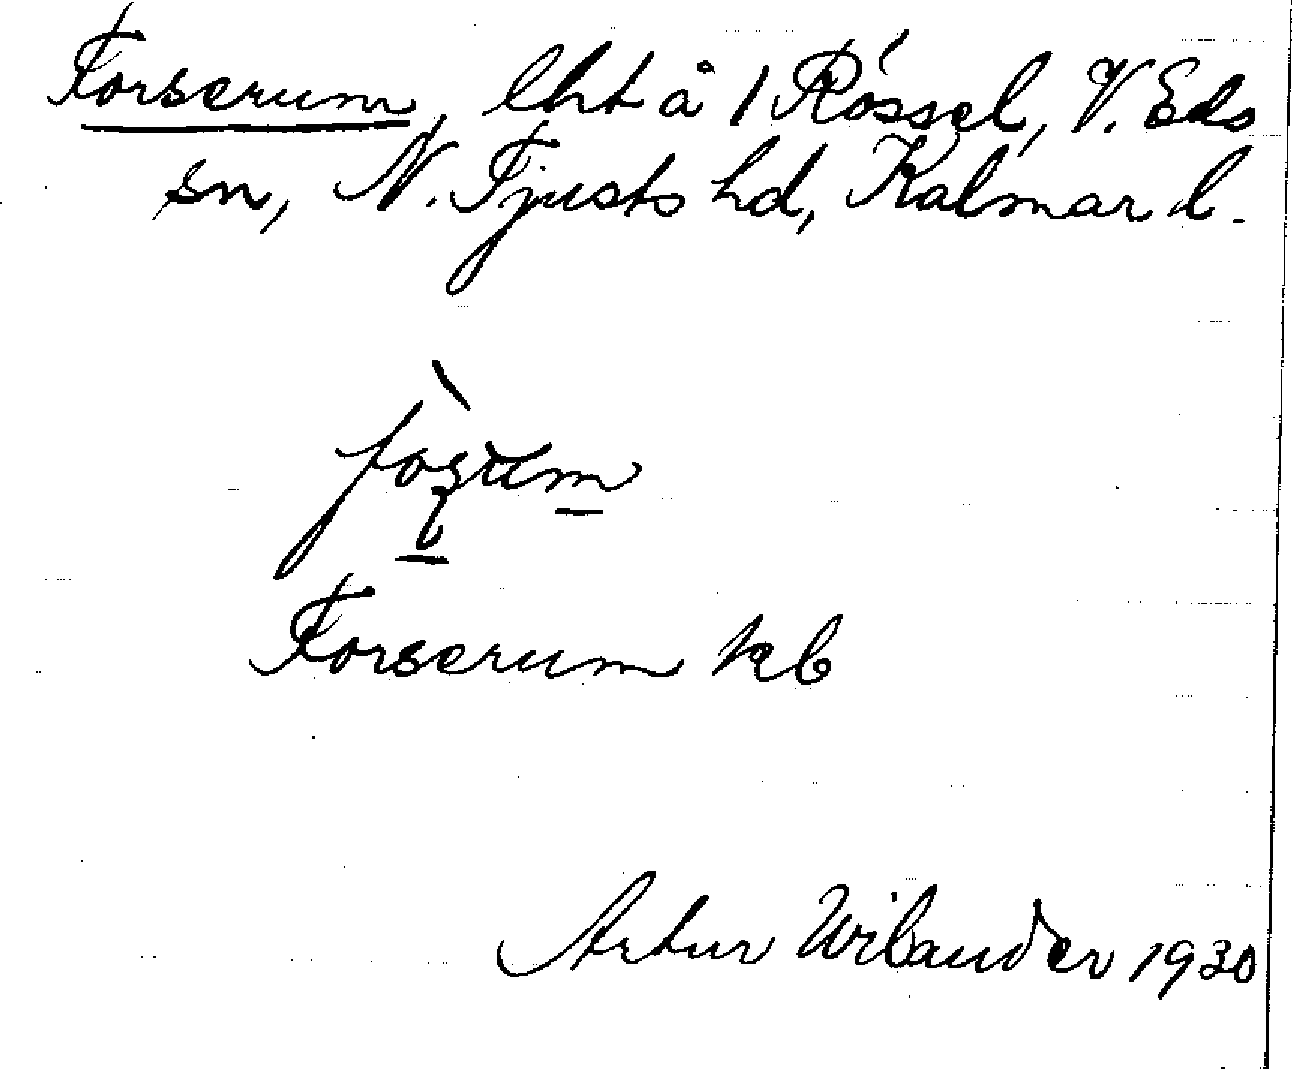 Forserum, lht å 1 Róssel, V. Eds
sn, N. Tjusts hd, Kalmar l.
Forserum kb
Artur Wilander 1930